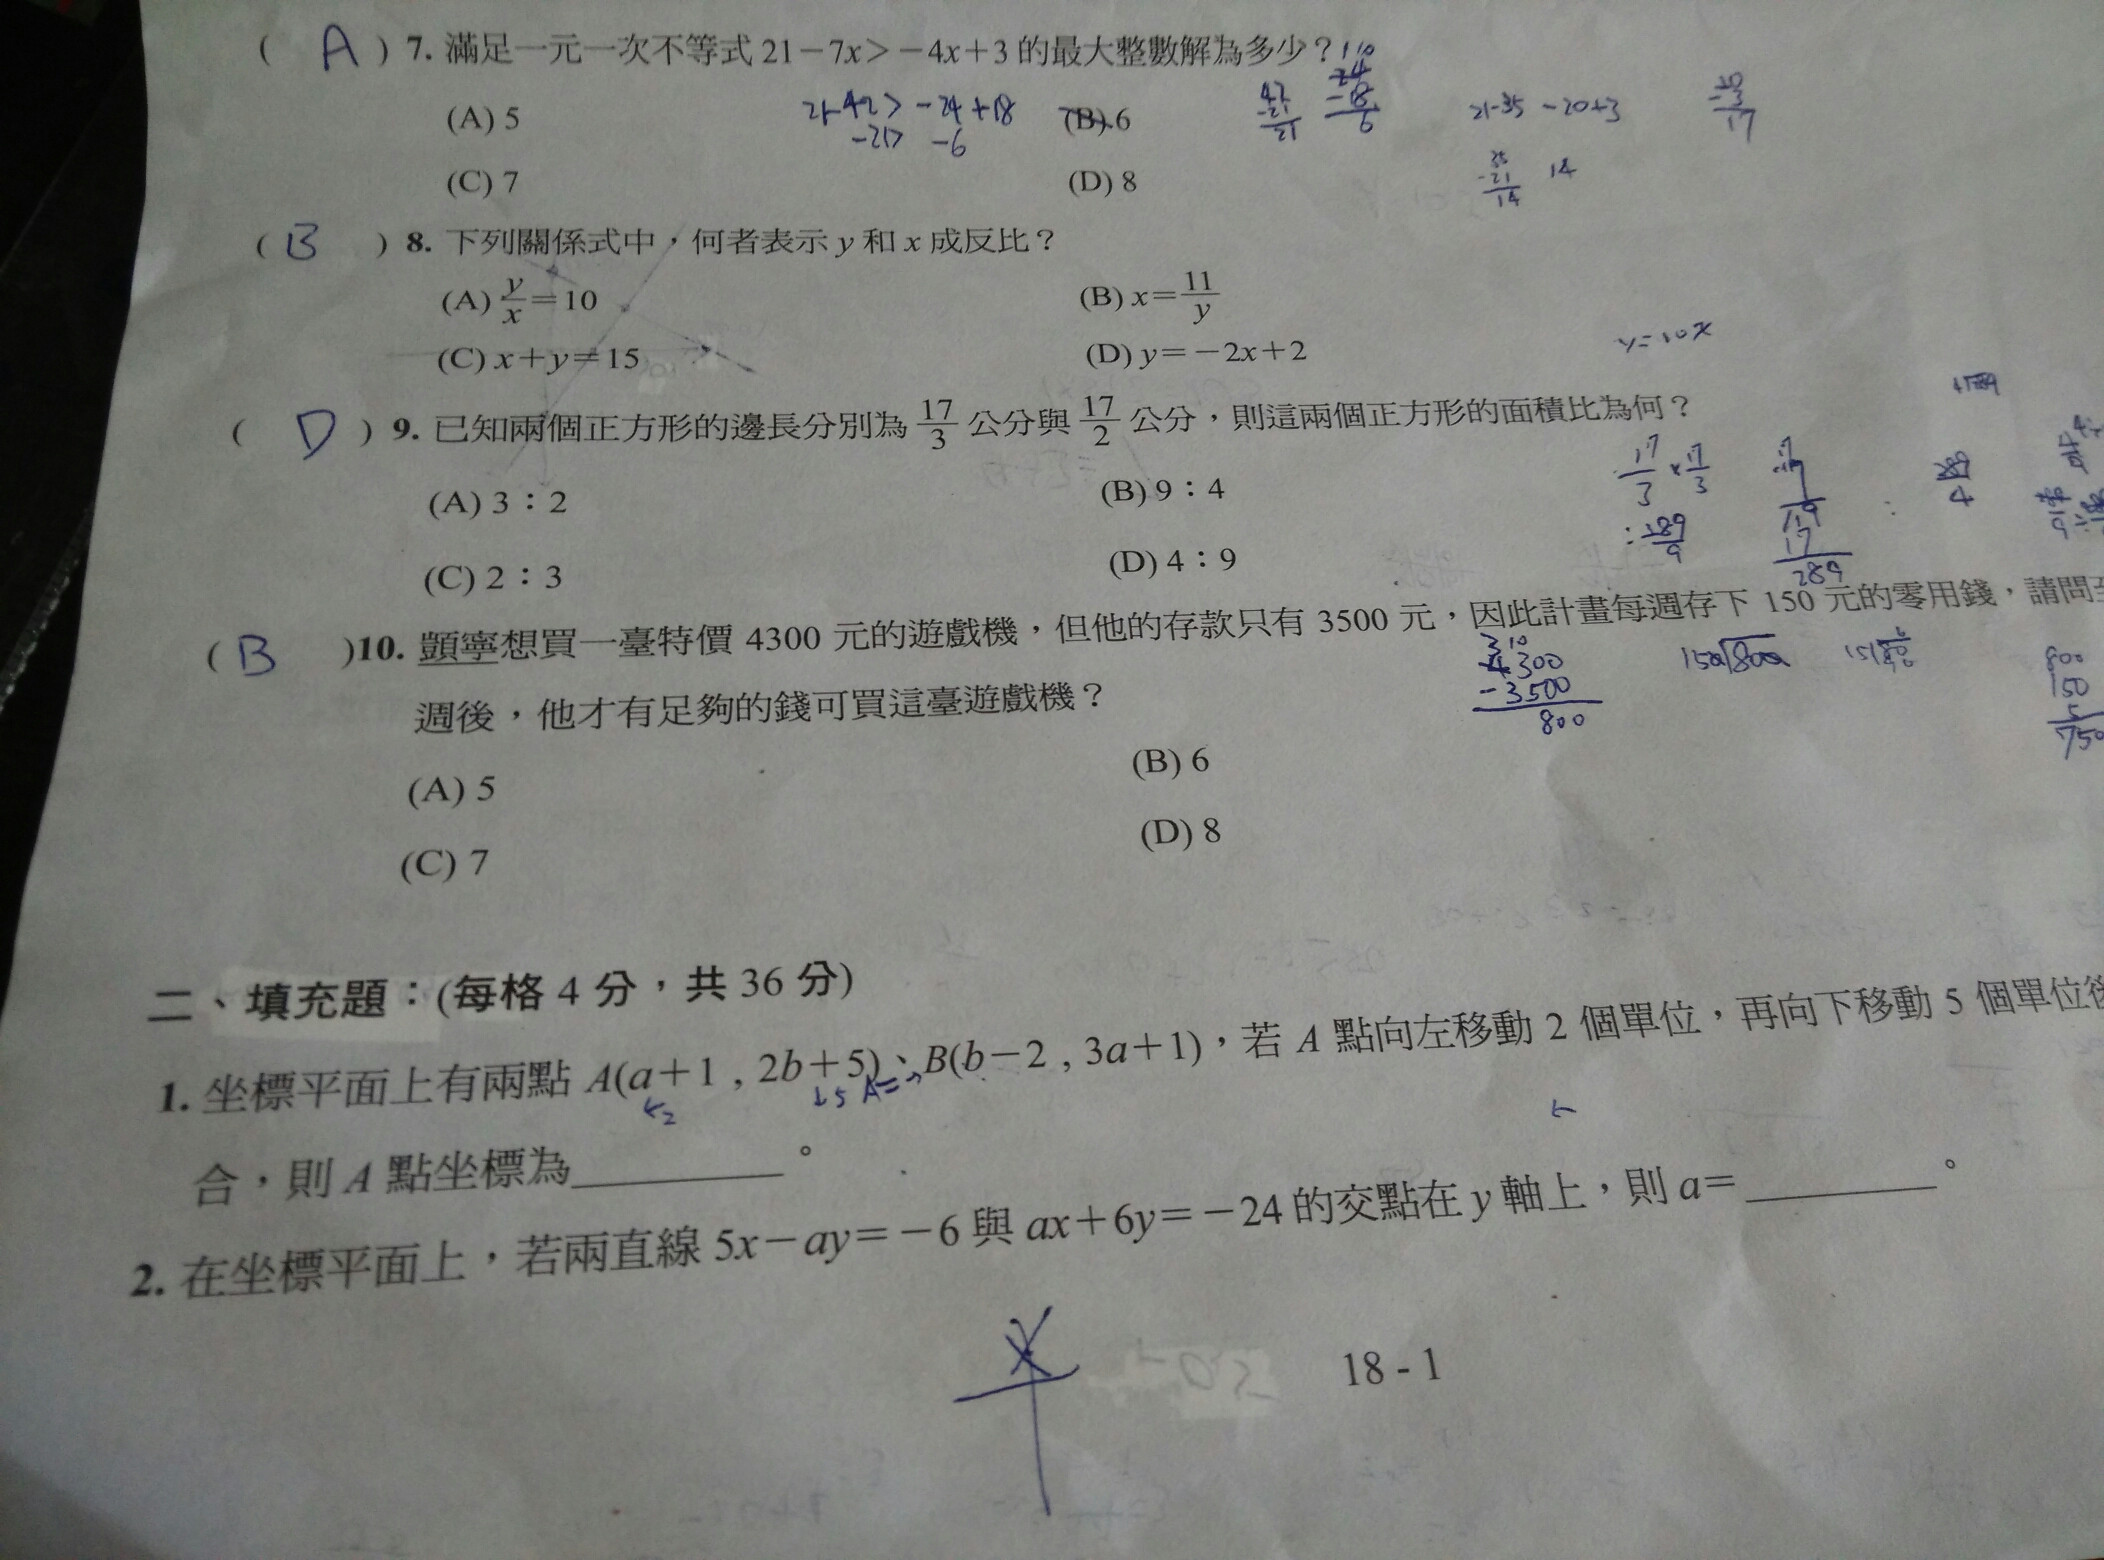 ( A ) 7. 滿足一元一次不等式 21－7x＞－4x＋3 的最大整數解為多少？
(A) 5
21-42 > -24+18
-21> -6
(B) 6
42
-21
21
24
-18
6
21-35 -20+3
-3
17
(C) 7
(D) 8
-21
14
14
( B ) 8. 下列關係式中，何者表示 y 和 x 成反比？
(A) y/x＝10
(B) x＝11/y
(C) x＋y＝15
(D) y＝－2x＋2
y=10x
( D ) 9. 已知兩個正方形的邊長分別為 17/3 公分與 17/2 公分，則這兩個正方形的面積比為何？
(A) 3：2
(B) 9：4
17/3 x 17/3
289/9
17
119
17
289
4
(C) 2：3
(D) 4：9
( B )10. 顗寧想買一臺特價 4300 元的遊戲機，但他的存款只有 3500 元，因此計畫每週存下 150 元的零用錢，請問
週後，他才有足夠的錢可買這臺遊戲機？
3 10
4300
-3500
800
150 800
800
150
5
750
(A) 5
(B) 6
(C) 7
(D) 8
二、填充題：(每格 4 分，共 36 分)
1. 坐標平面上有兩點 A(a＋1 , 2b＋5)、B(b－2 , 3a＋1)，若 A 點向左移動 2 個單位，再向下移動 5 個單位後
←2 ↓5 A=
合，則 A 點坐標為＿＿＿＿。
2. 在坐標平面上，若兩直線 5x－ay＝－6 與 ax＋6y＝－24 的交點在 y 軸上，則 a＝＿＿＿＿。
18 - 1